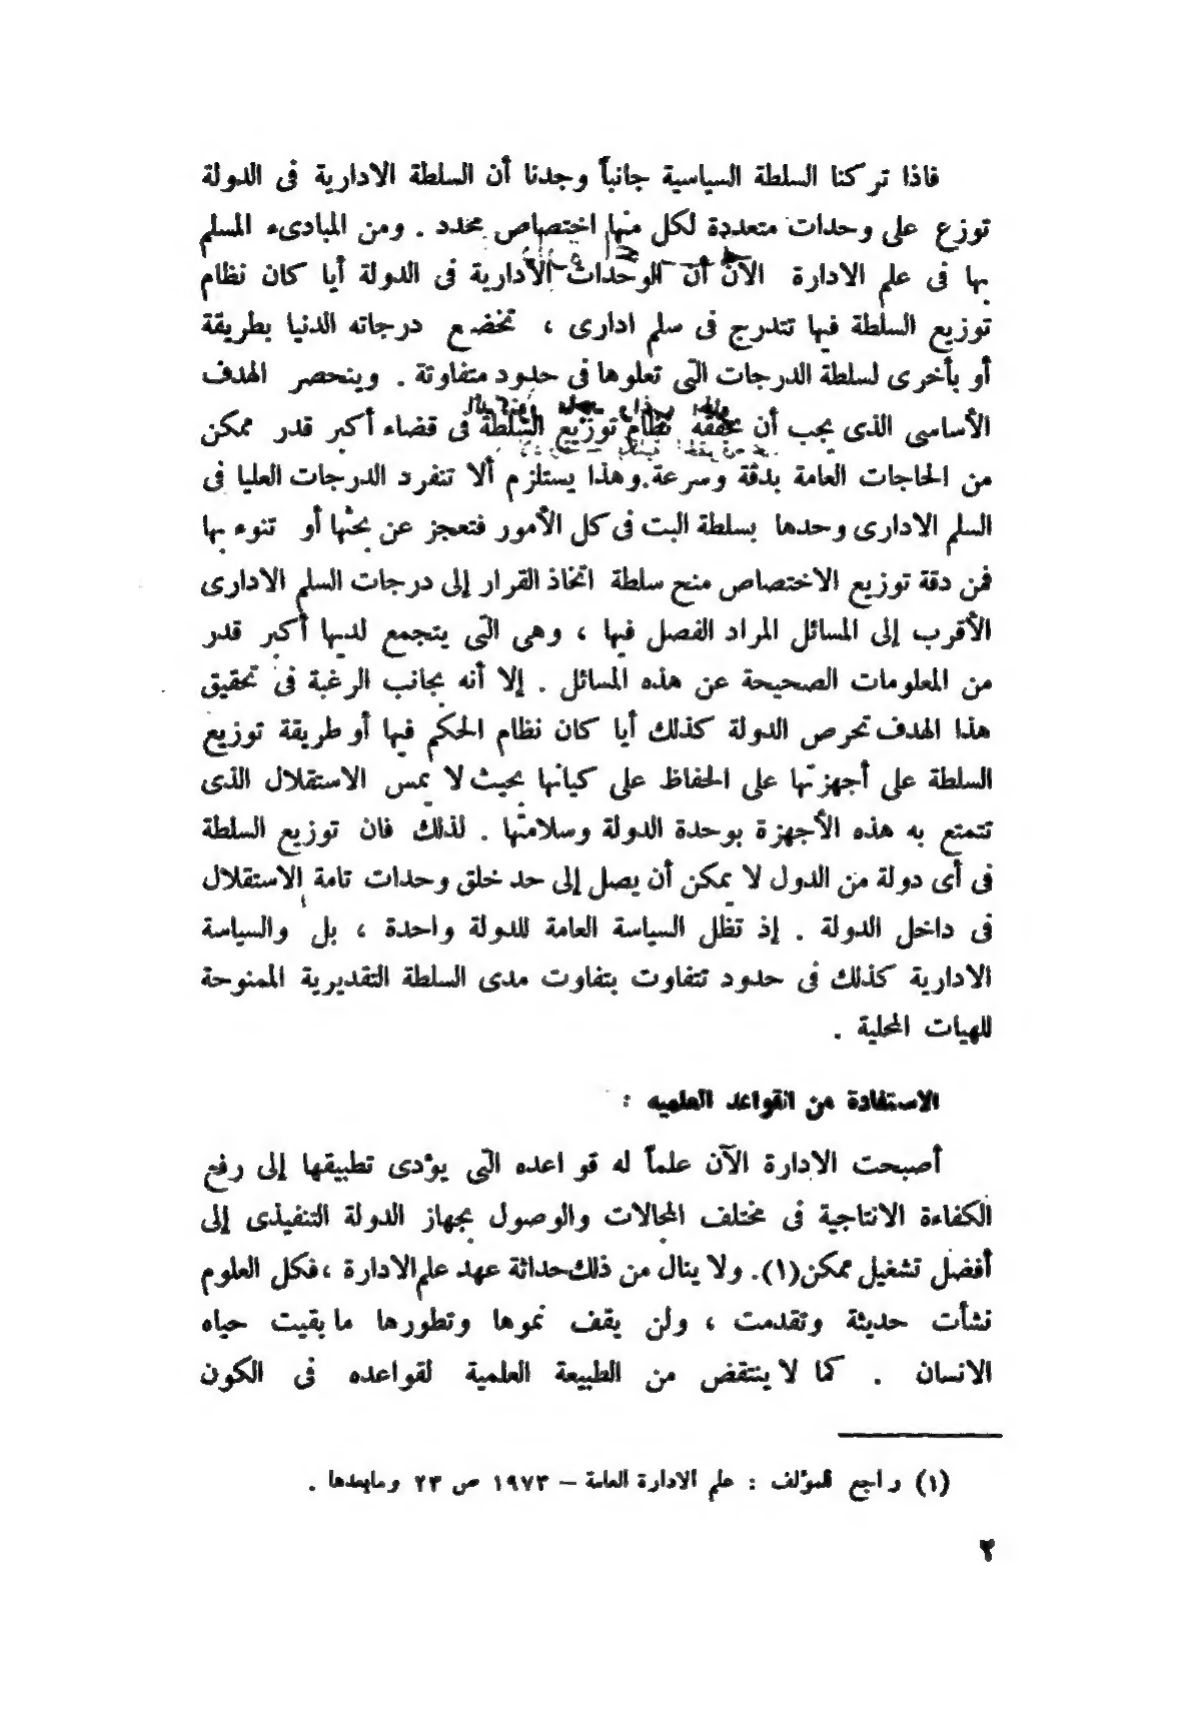 فاذا تركنا السلطة السياسية جانباً وجدنا أن السلطة الادارية فى الدولة
توزع على وحدات متعددة لكل منها اختصاص محدد . ومن المبادىء المسلم
بها فى علم الادارة الآن أن الوحدات الادارية فى الدولة أيا كان نظام
توزيع السلطة فيها تتدرج فى سلم ادارى ، تخضع درجاته الدنيا بطريقة
أو بأخرى لسلطة الدرجات التى تعلوها فى حدود متفاوتة . وينحصر الهدف
الأساسى الذى يجب أن يحققه نظام توزيع السلطة فى قضاء أكبر قدر ممكن
من الحاجات العامة بدقة وسرعة.وهذا يستلزم ألا تنفرد الدرجات العليا فى
السلم الادارى وحدها بسلطة البت فى كل الأمور فتعجز عن بحثها أو تنوء بها
فمن دقة توزيع الاختصاص منح سلطة اتخاذ القرار إلى درجات السلم الادارى
الأقرب إلى المسائل المراد الفصل فيها ، وهى التى يتجمع لديها أكبر قدر
من المعلومات الصحيحة عن هذه المسائل . إلا أنه بجانب الرغبة فى تحقيق
هذا الهدف تحرص الدولة كذلك أيا كان نظام الحكم فيها أو طريقة توزيع
السلطة على أجهزتها على الحفاظ على كيانها بحيث لا يمس الاستقلال الذى
تتمتع به هذه الأجهزة بوحدة الدولة وسلامتها . لذلك فان توزيع السلطة
فى أى دولة من الدول لا يمكن أن يصل إلى حد خلق وحدات تامة الاستقلال
فى داخل الدولة . إذ تظل السياسة العامة للدولة واحدة ، بل والسياسة
الادارية كذلك فى حدود تتفاوت بتفاوت مدى السلطة التقديرية الممنوحة
للهيات المحلية .
الاستفادة من القواعد العلميه :
أصبحت الادارة الآن علماً له قواعده التى يؤدى تطبيقها إلى رفع
الكفاءة الانتاجية فى مختلف المجالات والوصول بجهاز الدولة التنفيذى إلى
أفضل تشغيل ممكن(١). ولا ينال من ذلك حداثة عهد علم الادارة ،فكل العلوم
نشأت حديثة وتقدمت ، ولن يقف نموها وتطورها ما بقيت حياه
الانسان . كما لا ينتقض من الطبيعة العلمية لقواعده فى الكون
(١) راجع للمؤلف : علم الادارة العامة – ١٩٧٣ ص ٢٣ ومابعدها .
٢